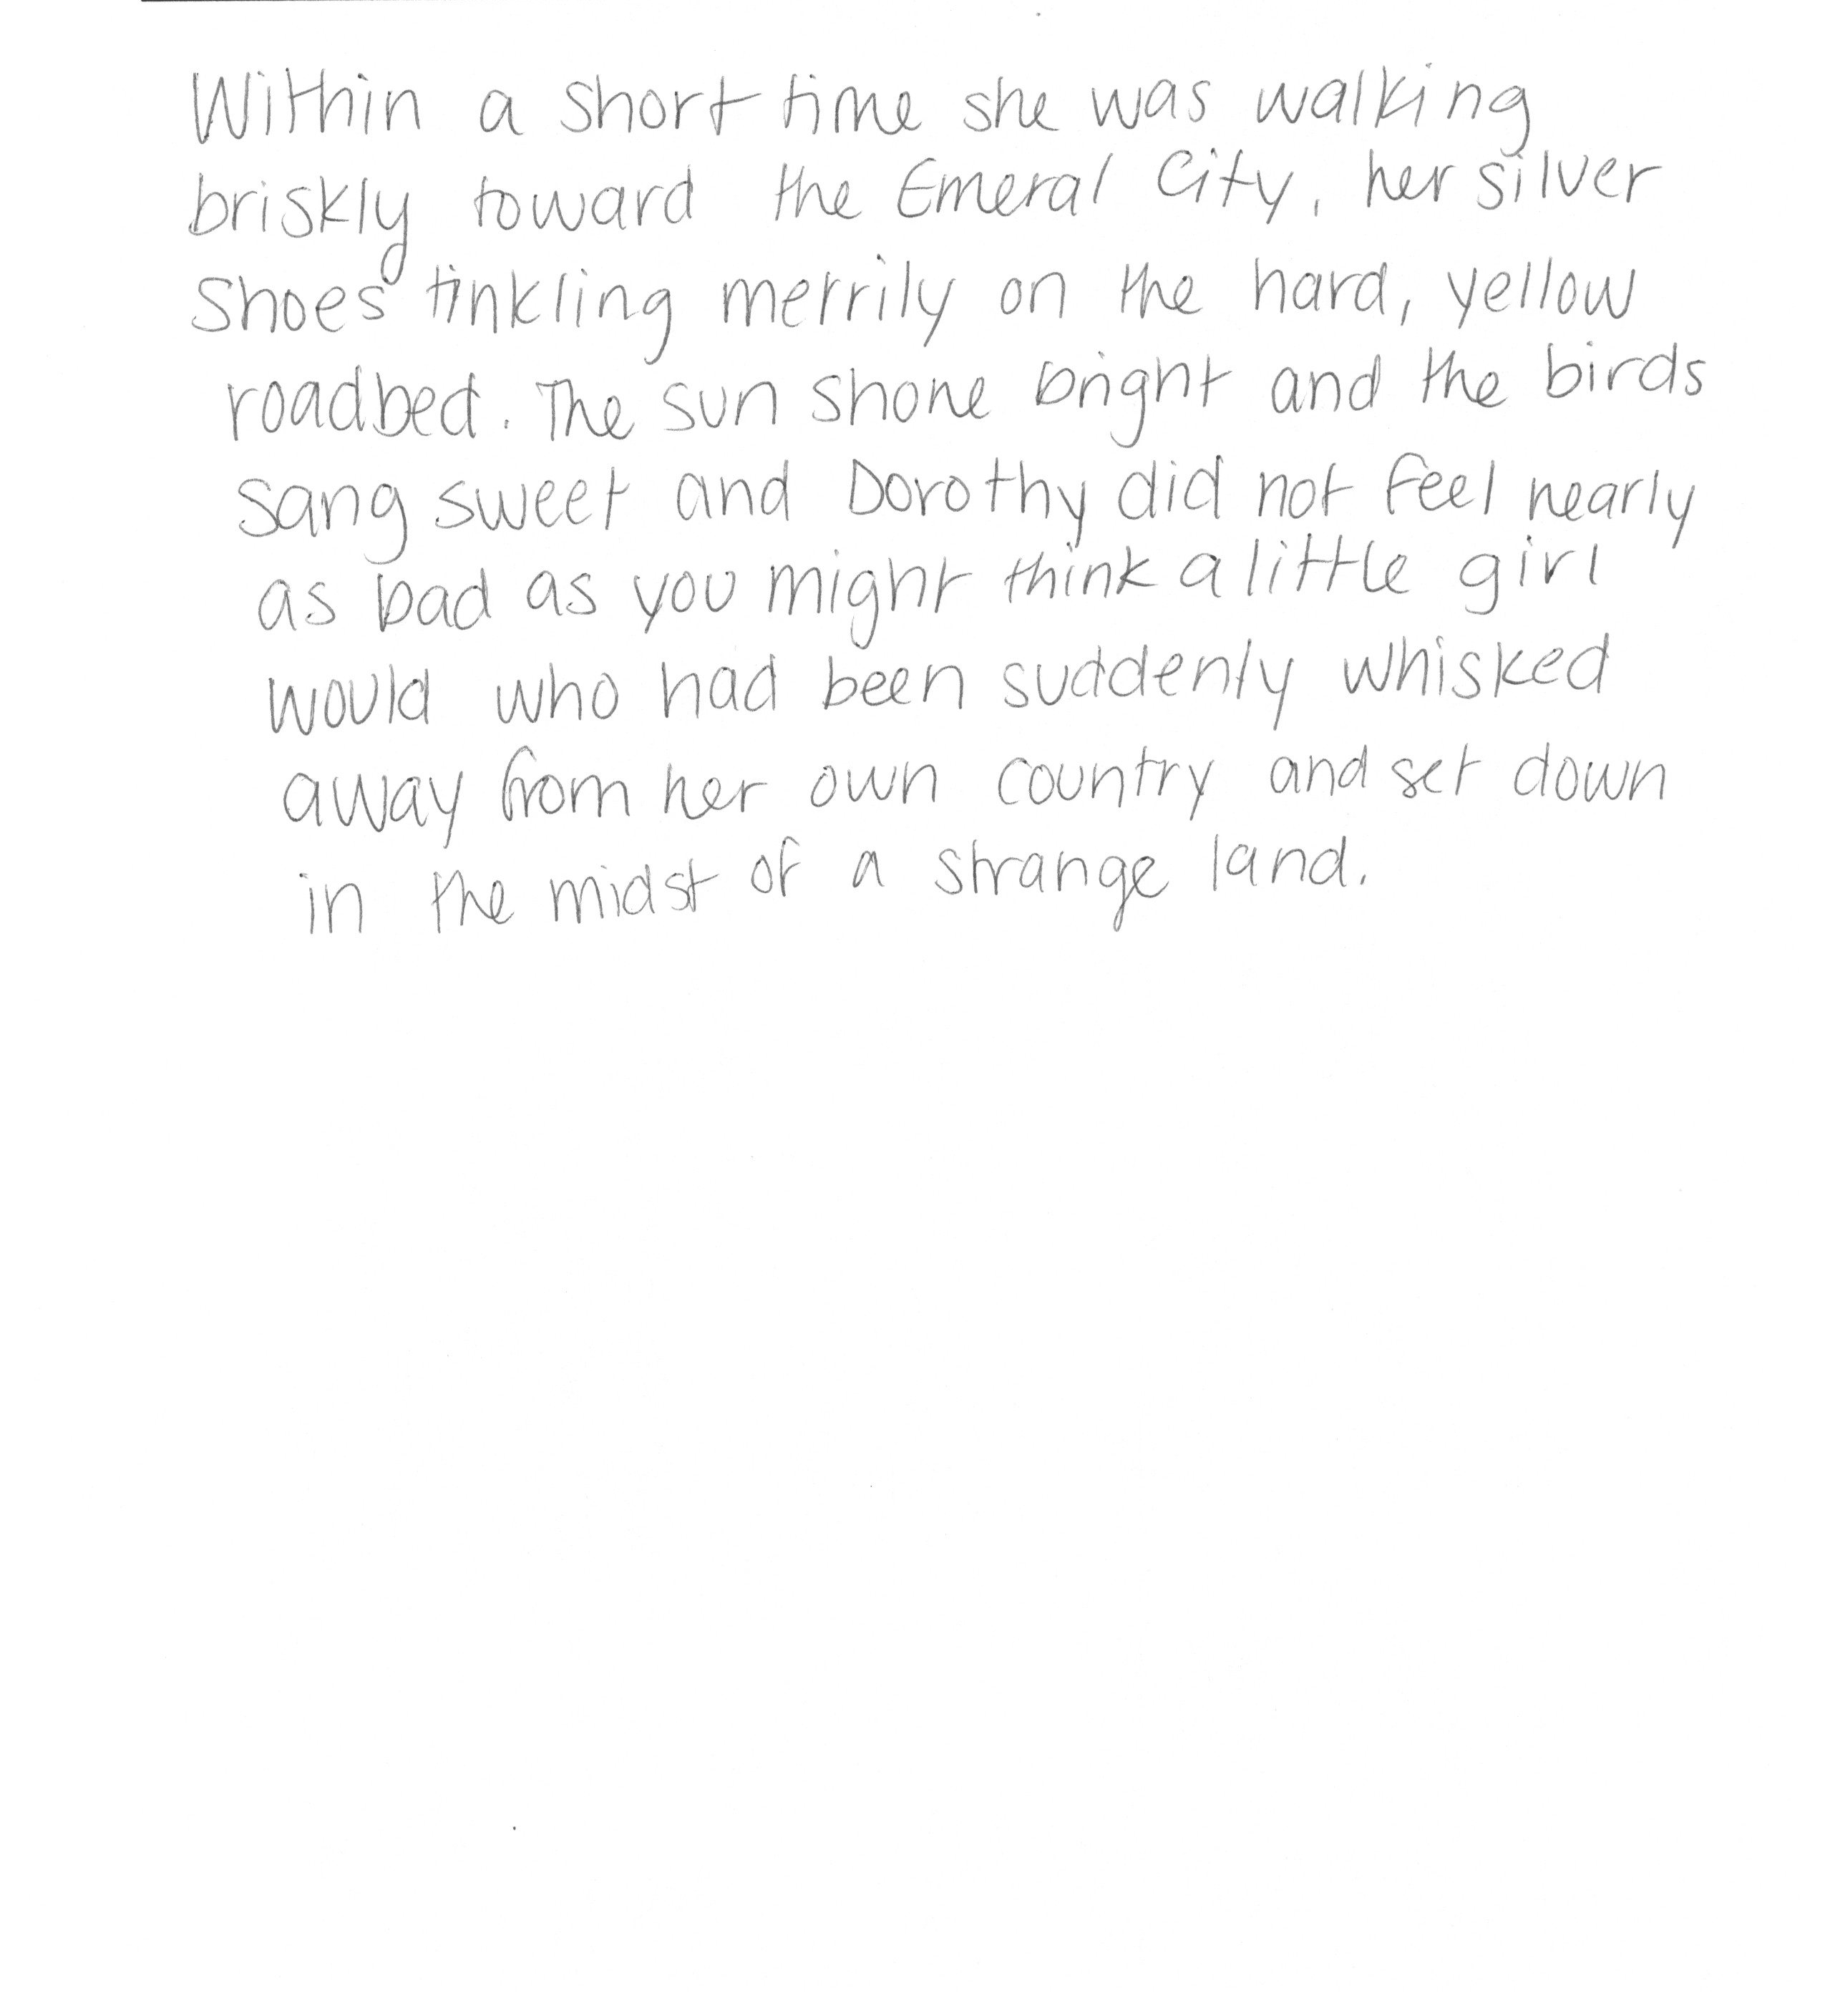 Within a short time she was walking
briskly toward the Emeral City, her silver
shoes tinkling merrily on the hard, yellow
roadbed. The sun shone bright and the birds
sang sweet and Dorothy did not feel nearly
as bad as you might think a little girl
would who had been suddenly whisked
away from her own country and set down
in the midst of a strange land.